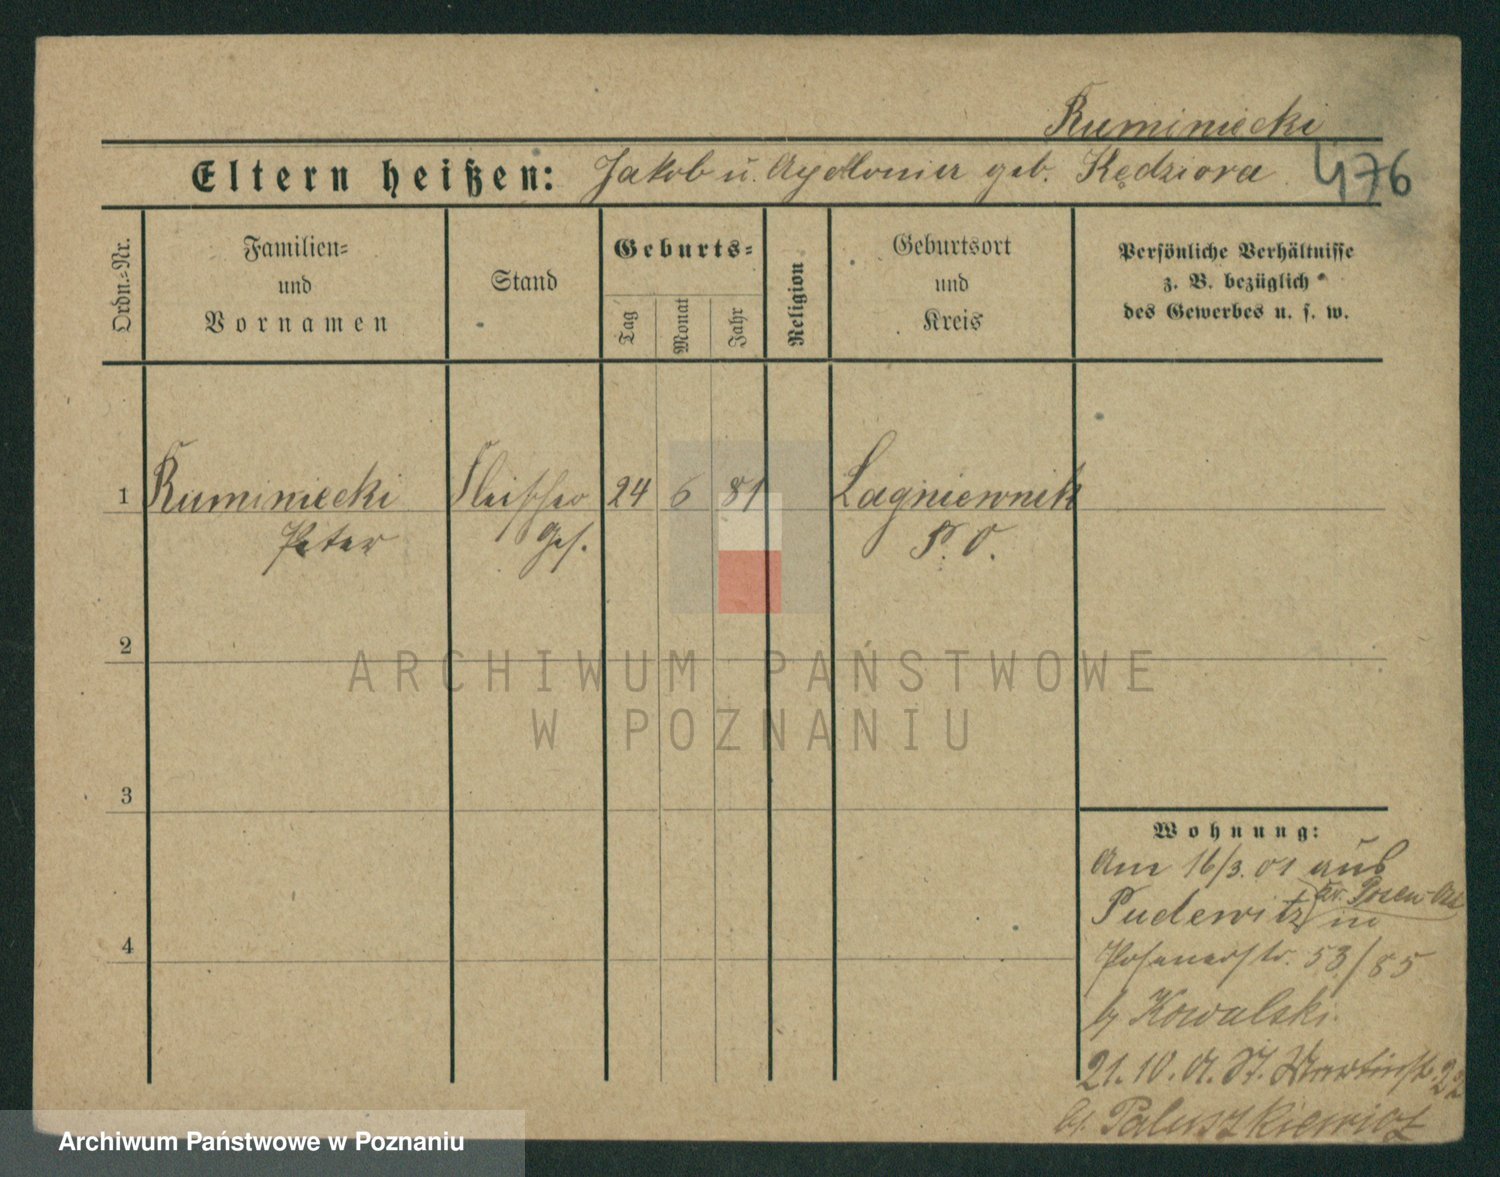 Ruminiecki
Eltern heißen: Jakob u. Apollonia geb. Kędziora 476
Ordn.-Nr.
Familien-
und
Vornamen
Stand
Geburts-
Tag
Monat
Jahr
Religion
Geburtsort
und
Kreis
Persönliche Verhältnisse
z. B. bezüglich
des Gewerbes u. s. w.
1 Ruminiecki Fleischer 24 6 81 Lagniewnik
Peter Ges. P. O.
2
3
4
Wohnung:
Am 16/3. 01 aus
Pudewitz Kr. Posen-Ost in
Posenerstr. 53/85
b/ Kowalski.
21. 10. 01. St. Martinstr. 22
b/. Paluszkiewicz
ARCHIWUM PAŃSTWOWE
W POZNANIU
Archiwum Państwowe w Poznaniu